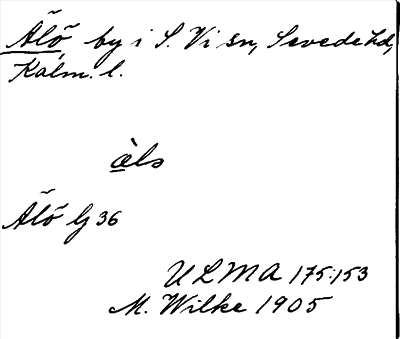 Älö, by i S. Vi sn, Sevede hd,
Kalm. l.
älö
Älö G 36
ULMA 175:153
M. Wilke 1905